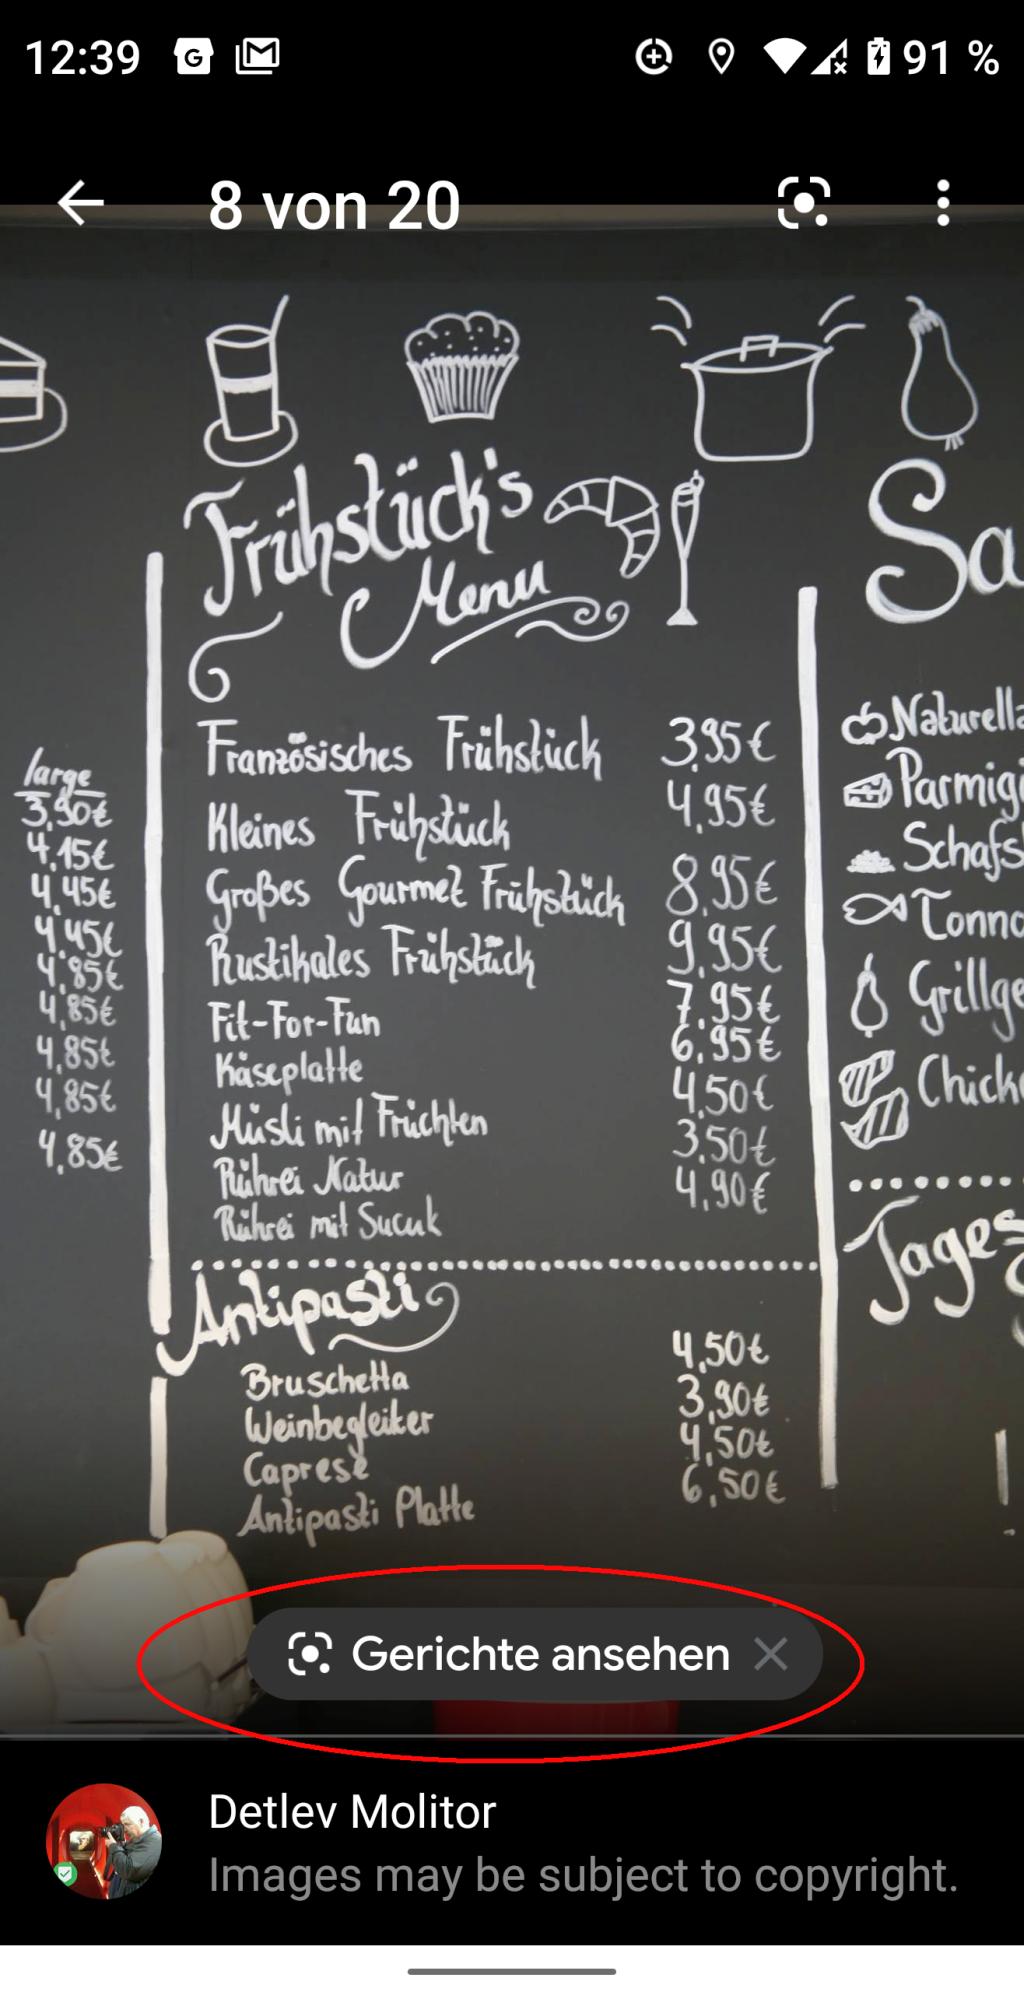 12:39
91 %
8 von 20
Frühstück's
Menu
Sa
large
3,90€
4,15€
4,45€
4,45€
4,85€
4,85€
4,85€
4,85€
4,85€
Französisches Frühstück 3,95€
Kleines Frühstück 4,95€
Großes Gourmet Frühstück 8,95€
Rustikales Frühstück 9,95€
Fit-For-Fun 7,95€
Käseplatte 6,95€
Müsli mit Früchten 4,50€
Rührei Natur 3,50€
Rührei mit Sucuk 4,90€
Antipasti
Bruschetta 4,50€
Weinbegleiter 3,90€
Caprese 4,50€
Antipasti Platte 6,50€
Naturella
Parmigi
Schafs
Tonno
Grillge
Chick
Tages
Gerichte ansehen
Detlev Molitor
Images may be subject to copyright.